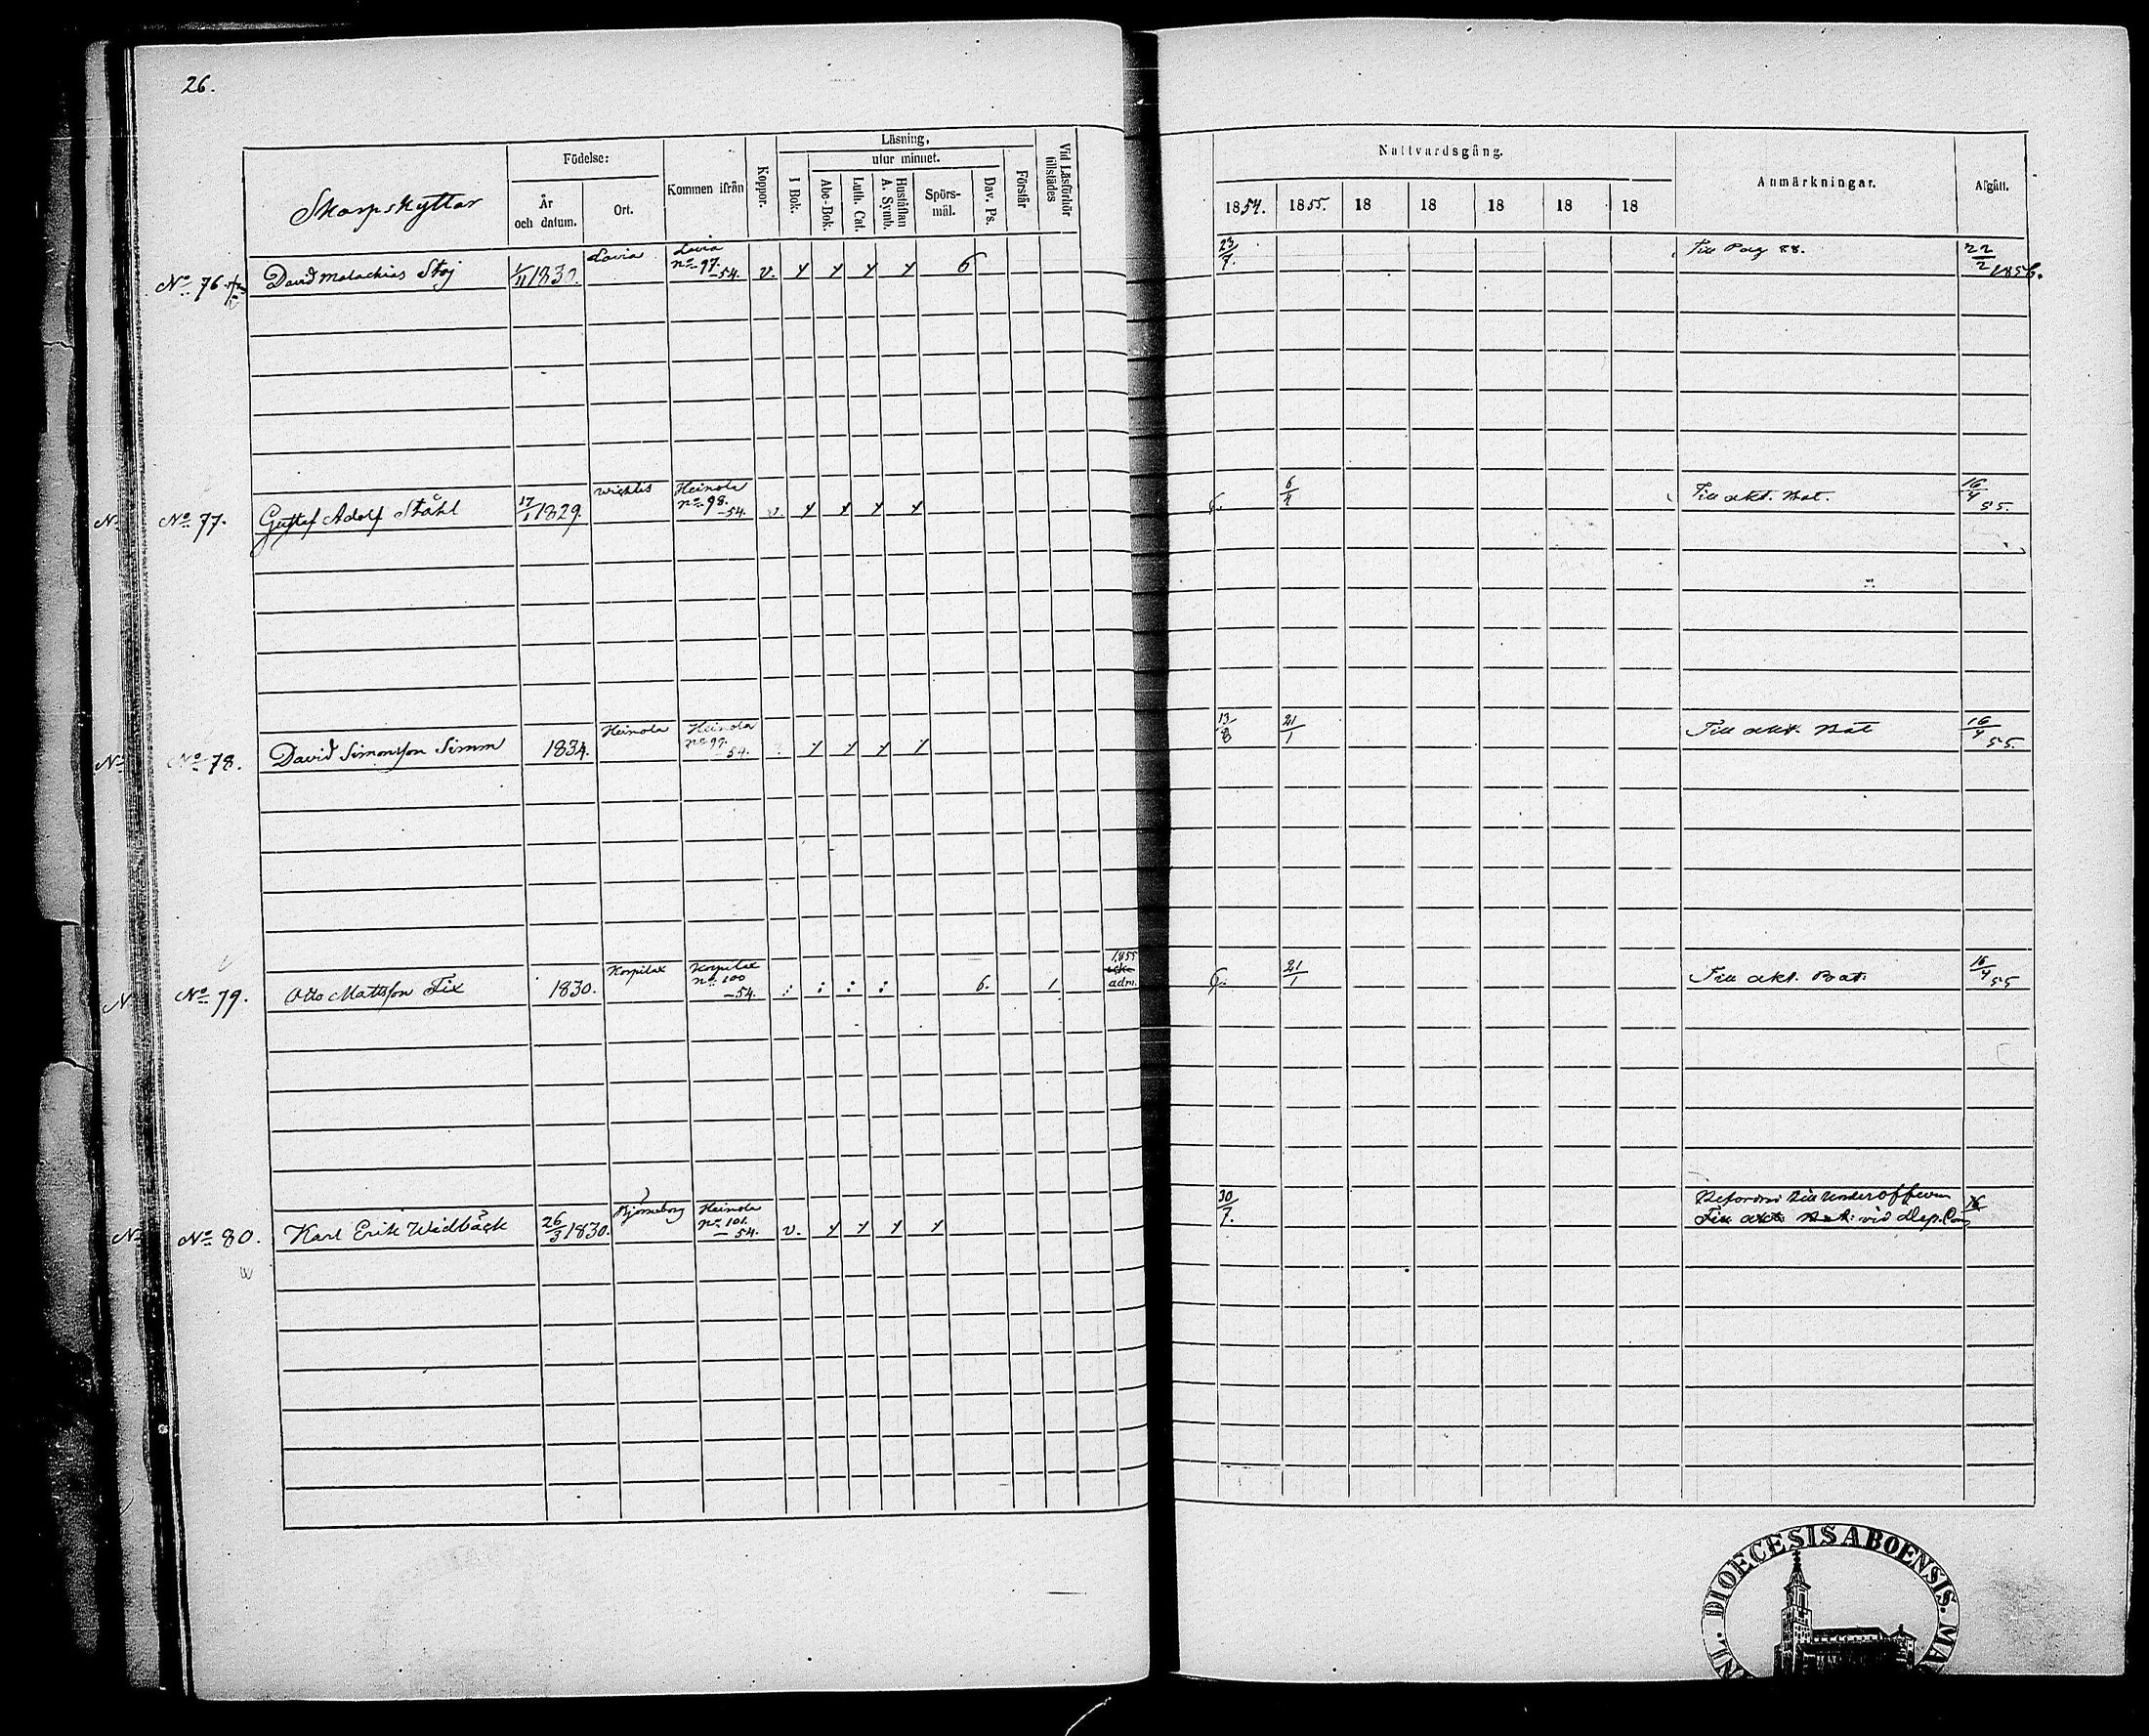 26.
Skarpskyttar
Födelse:
År och datum.
Ort.
Kommen ifrån
Koppor.
Läsning,
I Bok.
utur minnet.
Abc-Bok.
Luth. Cat.
Hustaflan A. Symb.
Spörs-mål.
Dav. Ps.
Förstår
Vid Läsförhör tillstädes
Nattvardsgång.
1854. 1855. 18 18 18 18 18
Anmärkningar.
Afgått.
No 76 David Malachias Stoj 1/11 1830. Lavia Lavia no 97. -54. v. 6 23/7. Till Pag 88. 22/2 1856.
No 77. Gustaf Adolf Ståhl 17/1 1829. Wichtis Heinola no 98. -54. v. 6/4 Till akt. Bat. 16/4 55.
No 78. David Simonsson Simm 1834. Heinola Heinola no 99. -54. 13/8 21/1 Till akt. Bat 16/4 55.
No 79. Otto Mattsson Fix 1830. Korpilax Korpilax no 100 -54. 6. 1 1855 adm. 21/1 Till akt. Bat. 16/4 55
No 80. Karl Erik Widbäck 26/3 1830. Björneborg Heinola no 101. -54. v. 30/7. Befordrad till Underofficer
Till akt. Bat: vid Dep. Com
DIOECESIS ABOENSIS.